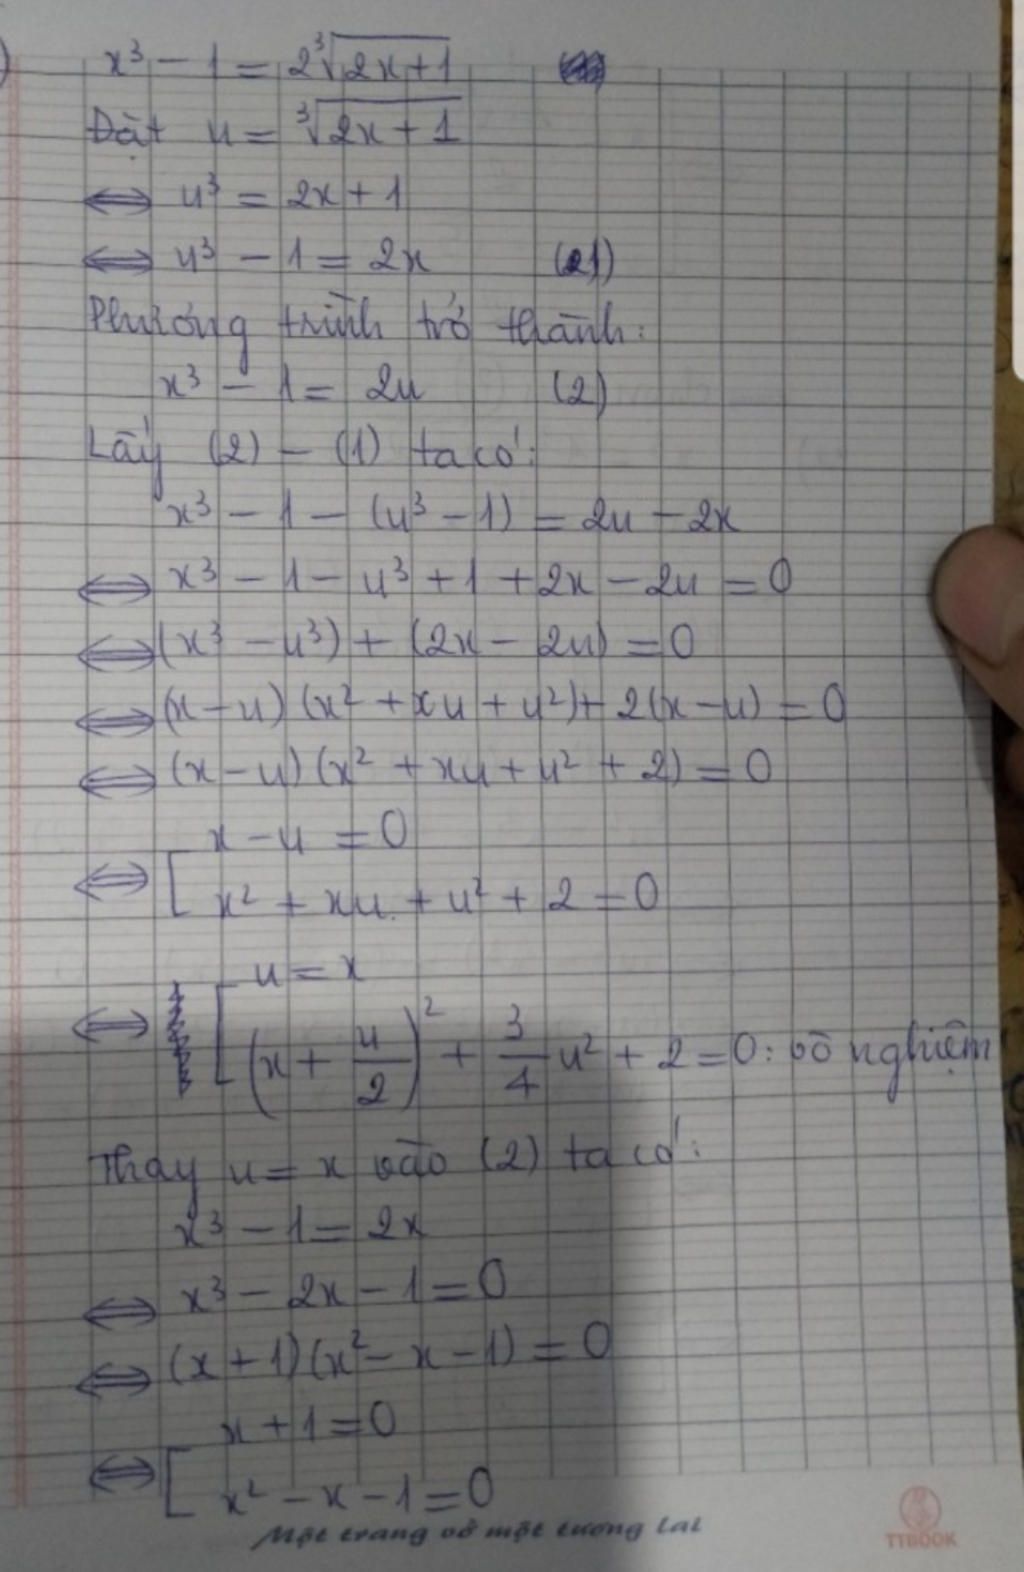 x³ − 1 = 2∛(2x+1)
Đặt u = ∛(2x + 1)
⟺ u³ = 2x + 1
⟺ u³ − 1 = 2x (1)
Phương trình trở thành:
x³ − 1 = 2u (2)
Lấy (2) − (1) ta có:
x³ − 1 − (u³ − 1) = 2u − 2x
⟺ x³ − 1 − u³ + 1 + 2x − 2u = 0
⟺ (x³ − u³) + (2x − 2u) = 0
⟺ (x − u) (x² + xu + u²) + 2(x − u) = 0
⟺ (x − u) (x² + xu + u² + 2) = 0
x − u = 0
⟺ [ x² + xu + u² + 2 = 0
u = x
⟺ [ (x + u/2)² + 3/4 u² + 2 = 0 : vô nghiệm
Thay u = x vào (2) ta có:
x³ − 1 = 2x
⟺ x³ − 2x − 1 = 0
⟺ (x + 1) (x² − x − 1) = 0
x + 1 = 0
⟺ [ x² − x − 1 = 0
Một trang vở một tương lai
TTBOOK